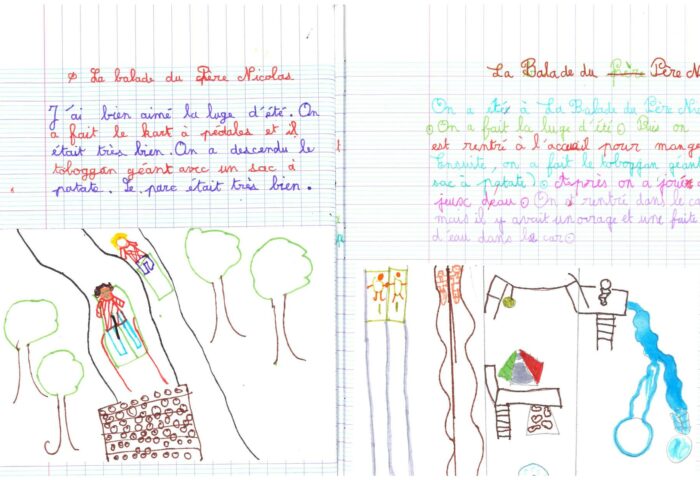 La balade du Père Nicolas
J'ai bien aimé la luge d'été. On
a fait le kart à pédales et il
était très bien. On a descendu le
toboggan géant avec un sac à
patate. Le parc était très bien.
La Balade du Père N
On a été à La Balade du Père Ni
On a fait la luge d'été. Puis on
est rentré à l'accueil pour mange
Ensuite, on a fait le toboggan géant
sac à patate). Après on a
jeux deau. On rentré dans le ca
mais il y avait un orage et une faite
d'eau dans le car.